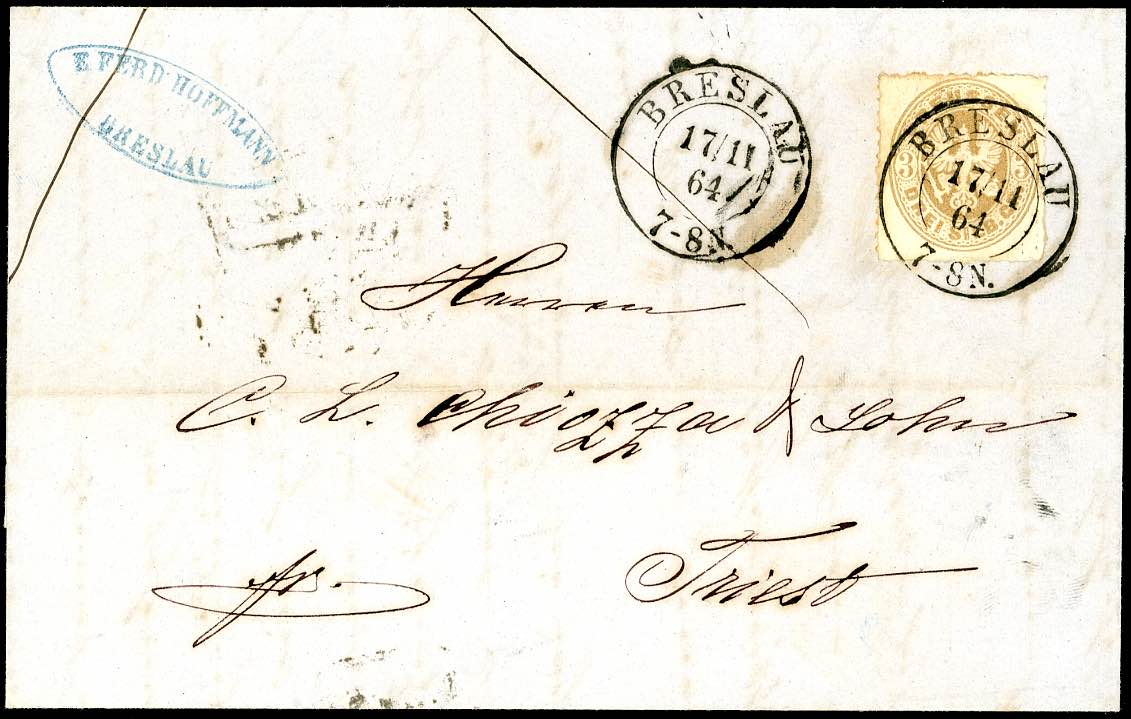 E. FERD. HOFFMANN
BRESLAU
BRESLAU
17/11
64
7-8N.
BRESLAU
17/11
64
7-8N.
3 3
Herren
C. L. Chiozza & Sohn
fr.
Triest